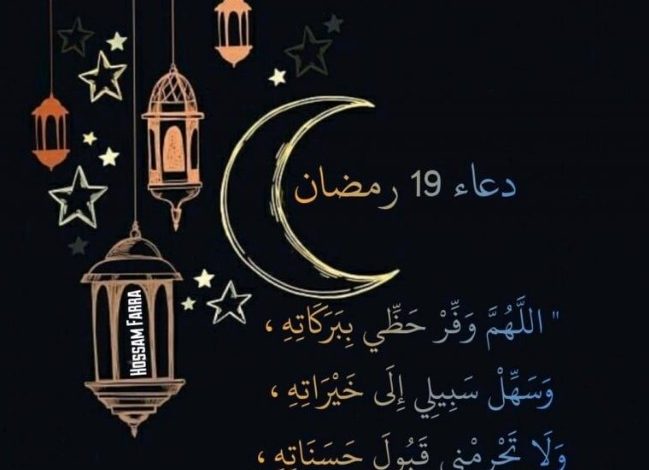 دعاء 19 رمضان
" اللَّهُمَّ وَفِّرْ حَظِّي بِبَرَكَاتِهِ ،
وَسَهِّلْ سَبِيلِي إِلَى خَيْرَاتِهِ ،
وَلَا تَحْرِمْنِي قَبُولَ حَسَنَاتِهِ ،
HOSSAM FARRA